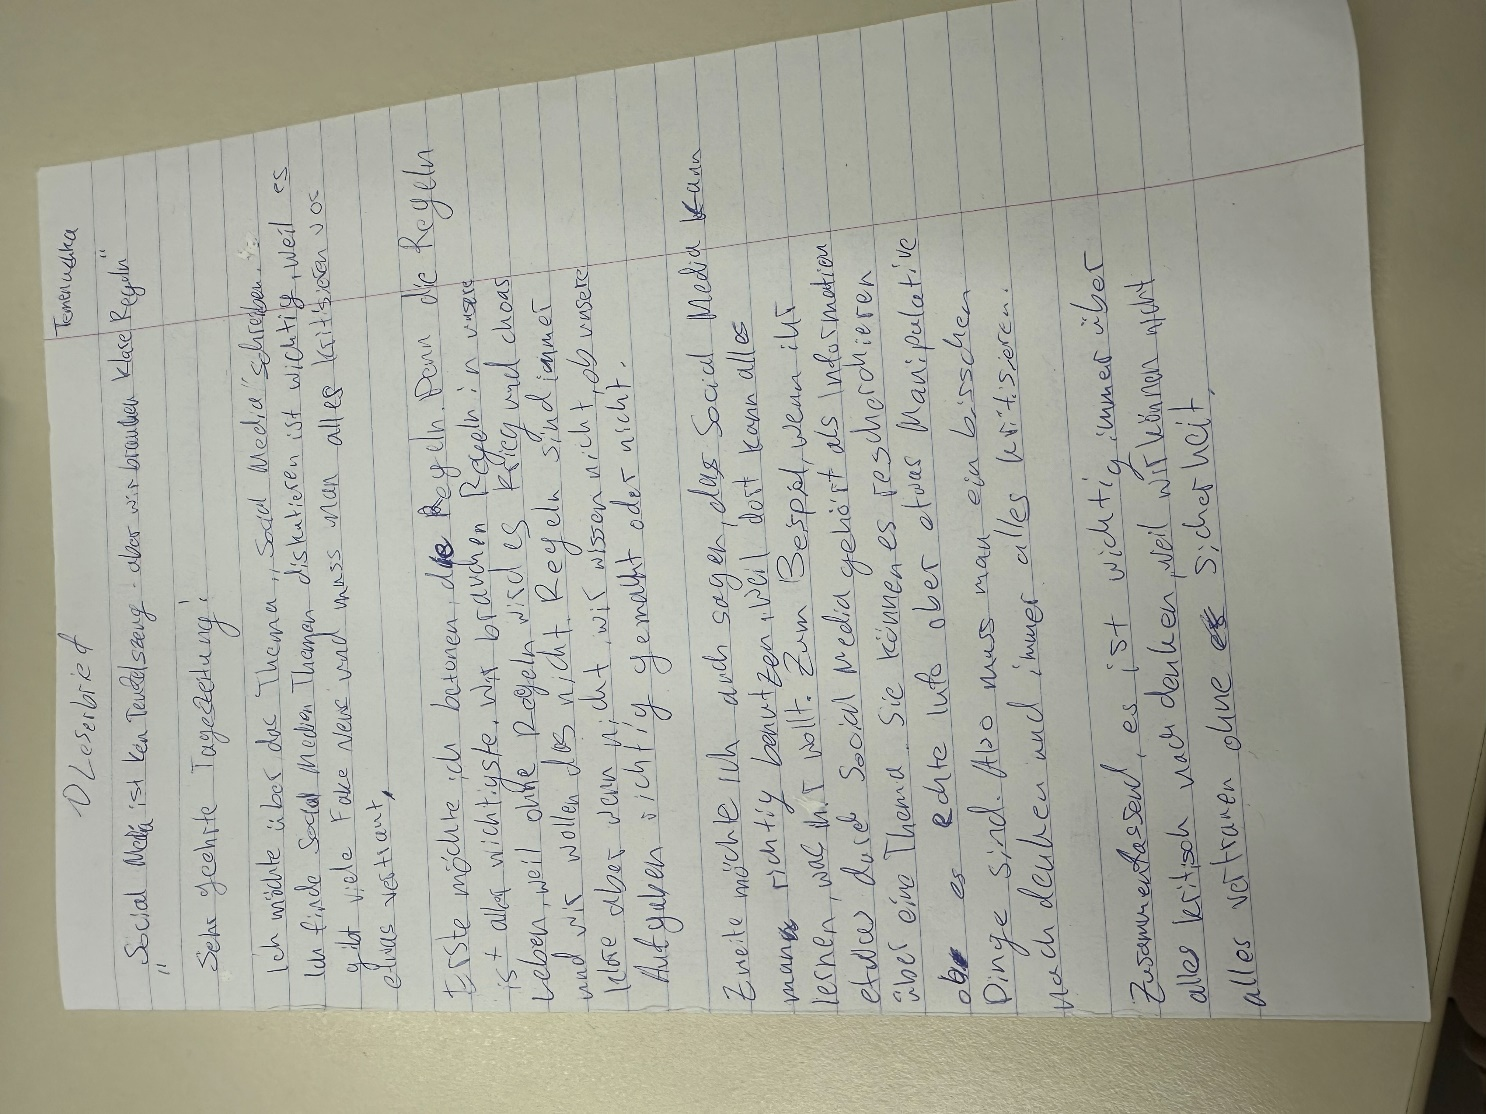 Temenuschka
D Leserbrief
„Social Media ist ken Teufelszeug - aber wir brauchen klare Regeln"
Sehr geehrte Tageszeitung!
Ich möchte über das Thema „Social Media" schreiben.
Ich finde Social Medien Themen diskutieren ist wichtig, weil es
gibt viele Fake News und muss man alles kritisieren vos
etwas vertraut,
Erste möchte ich betonen, die Regeln. Denn die Regeln
ist aller wichtigste. Wir brauchen Regeln in unsere
Leben, weil ohne Regeln wird es Krieg und choas
und wir wollen das nicht. Regeln sind immer
klare aber wenn nicht, wir wissen nicht, ob unsere
Aufgaben richtig gemacht oder nicht.
Zweite möchte ich auch sagen, das Social Media kann
man richtig benutzen, weil dort kann alles
lernen, was ihr wollt. Zum Bespiel, wenn ihr
etwas durch Social Media gehört als Information
über eine Thema. Sie können es rescharchieren
ob es Echte Info ober etwas Manipulative
Dinge sind. Also muss man ein bisschen
nach denken und immer alles kritisieren.
Zusammenfassend, es ist wichtig immer über
alles kritisch nach denken, weil wir können nicht
alles vertrauen ohne Sicherheit.